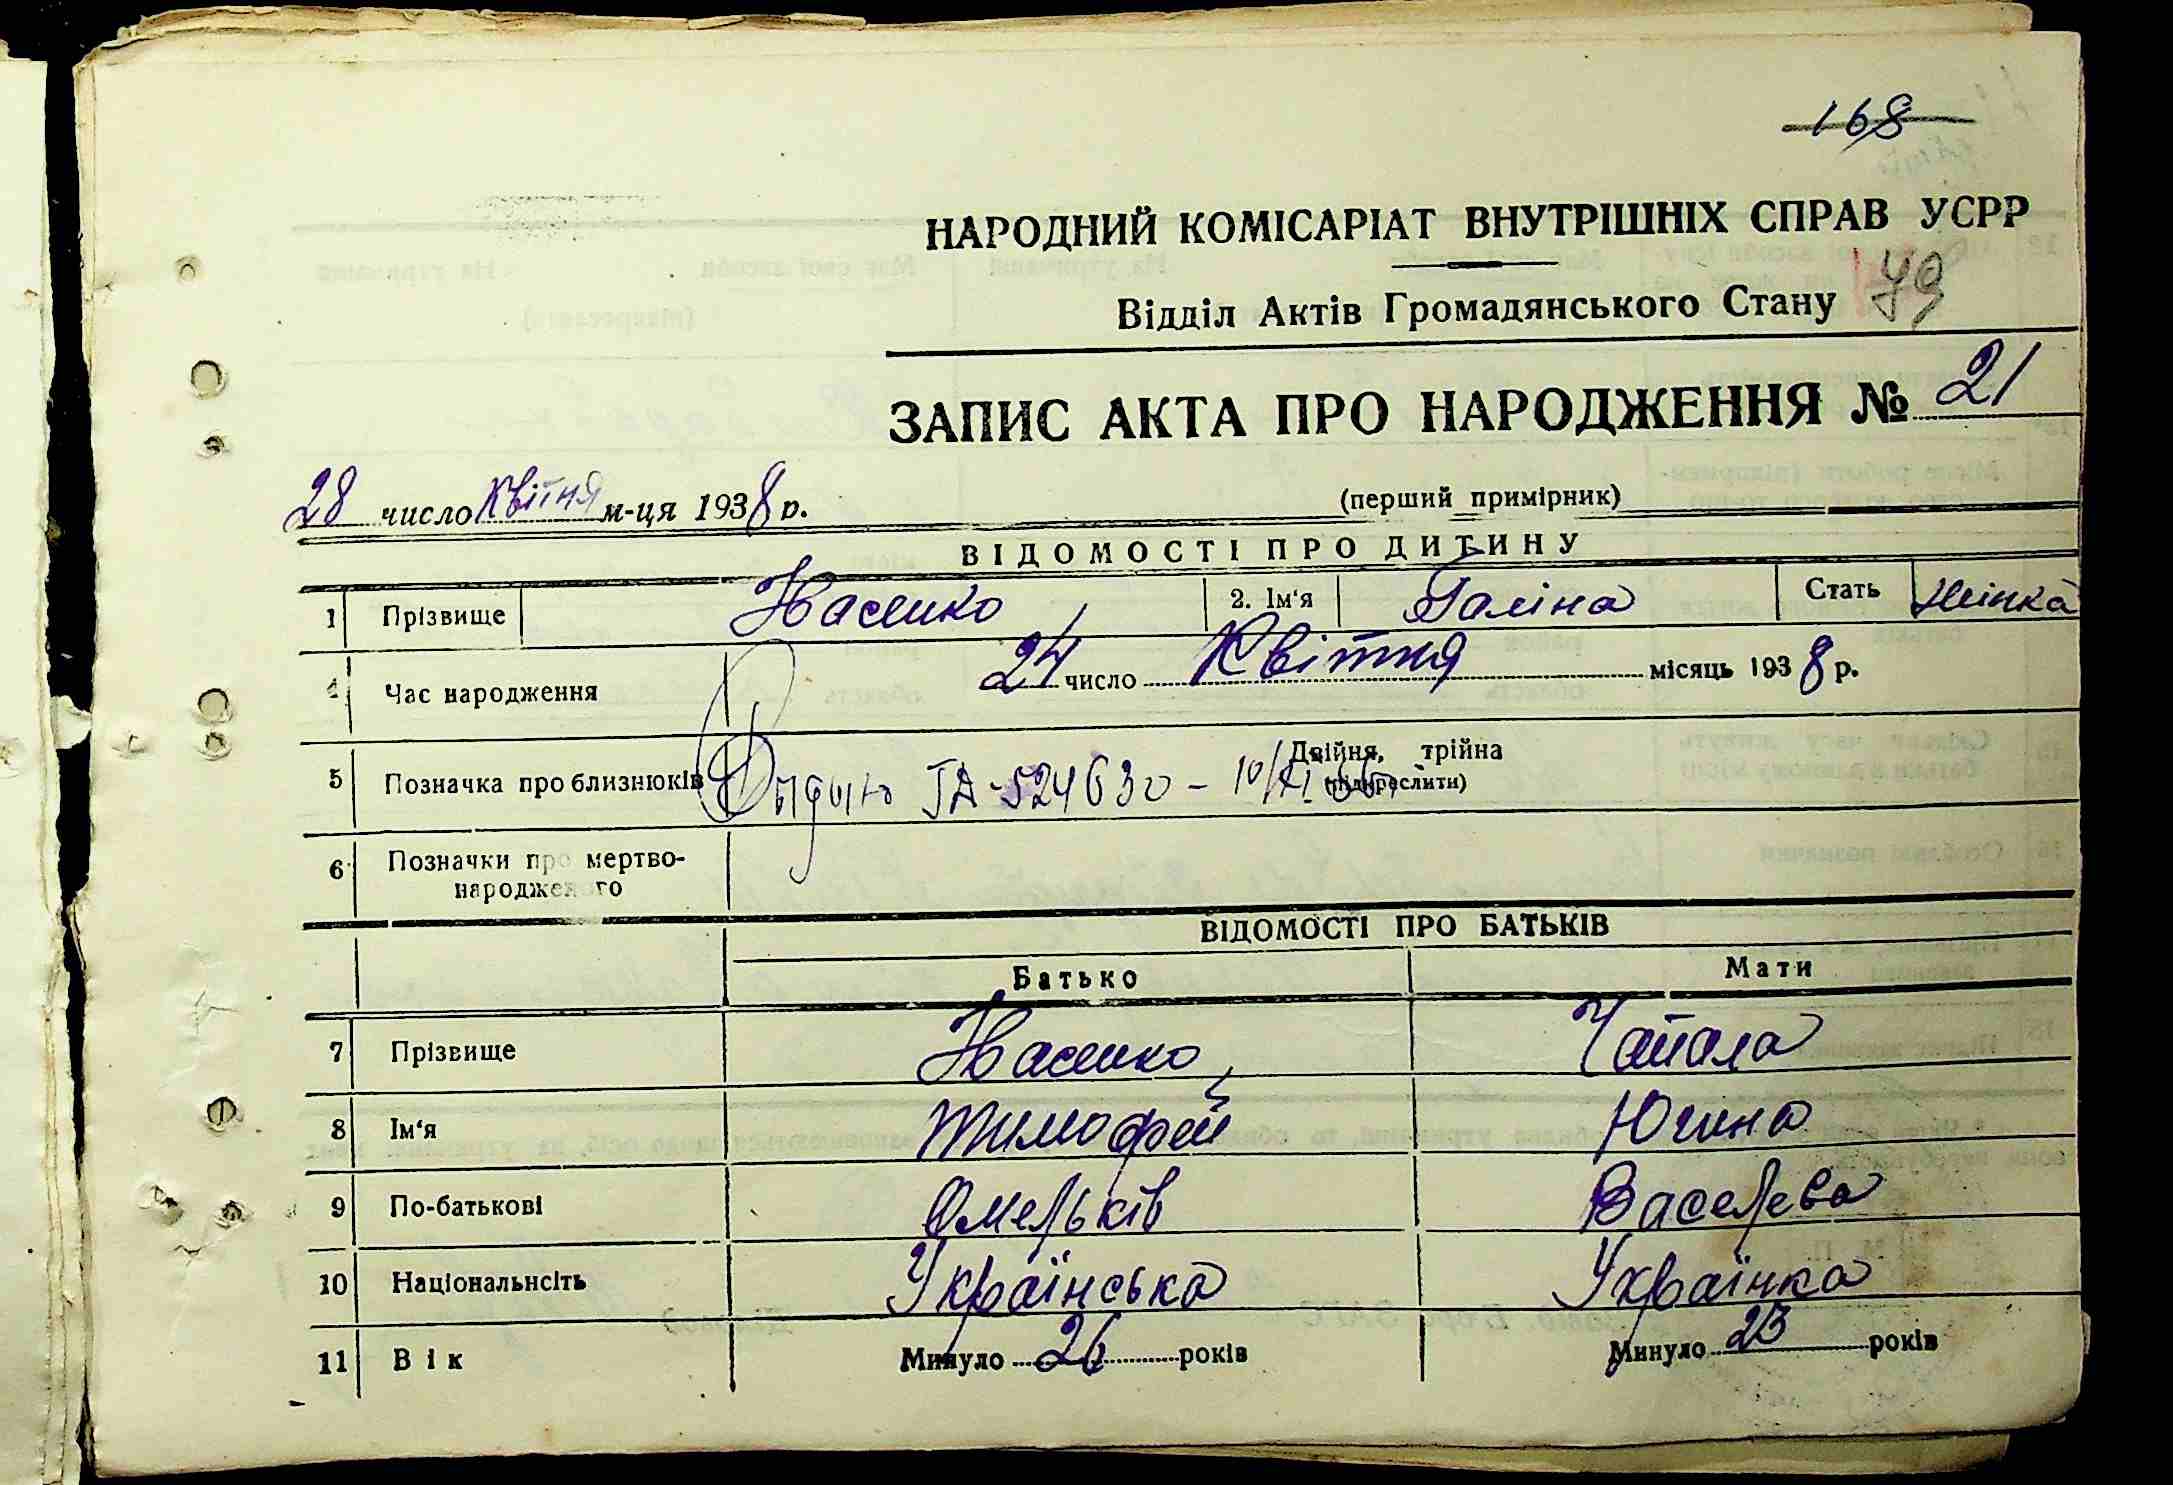 168
НАРОДНИЙ КОМІСАРІАТ ВНУТРІШНІХ СПРАВ УСРР
Відділ Актів Громадянського Стану 79
ЗАПИС АКТА ПРО НАРОДЖЕННЯ № 21
28 число Квітня м-ця 1938 р. (перший примірник)
ВІДОМОСТІ ПРО ДИТИНУ
1 Прізвище Насенко 2. Ім'я Галіна Стать жінка
4 Час народження 24 число Квітня місяць 1938 р.
Двійня, трійна
5 Позначка про близнюків ІА-524630 - 10/XI
(підкреслити)
6 Позначки про мертво-
народженого
ВІДОМОСТІ ПРО БАТЬКІВ
Батько Мати
7 Прізвище Насенко Чапала
8 Ім'я Тимофей Югина
9 По-батькові Омельків Васелева
10 Національнсіть Українська Українка
11 Вік Минуло 26 років Минуло 23 років